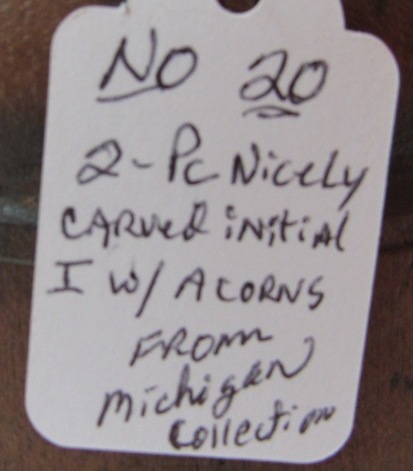 No 20
2-Pc Nicely
CARVED iNiTiAL
I W/ ACORNS
FROM
Michigan
Collection